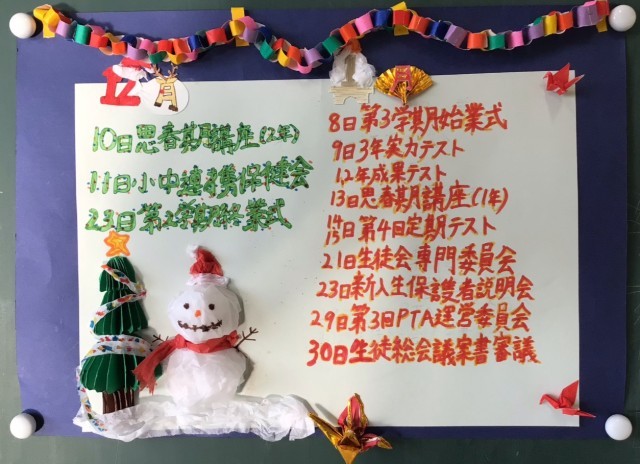 12月
10日思春期講座(2年)
11日小中連携保健会
23日第2学期終業式
1月
8日第3学期始業式
9日3年実力テスト
1,2年成果テスト
13日思春期講座(1年)
14日
15日第4回定期テスト
21日生徒会専門委員会
23日新入生保護者説明会
29日第3回PTA運営委員会
30日生徒総会議案書審議